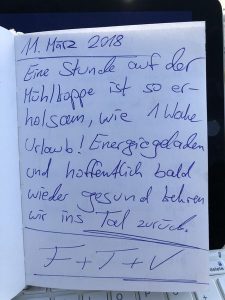 11. März 2018
Eine Stunde auf der
Mühlkoppe ist so er-
holsam, wie 1 Woche
Urlaub! Energiegeladen
und hoffentlich bald
wieder gesund kehren
wir ins Tal zurück.
F + J + V